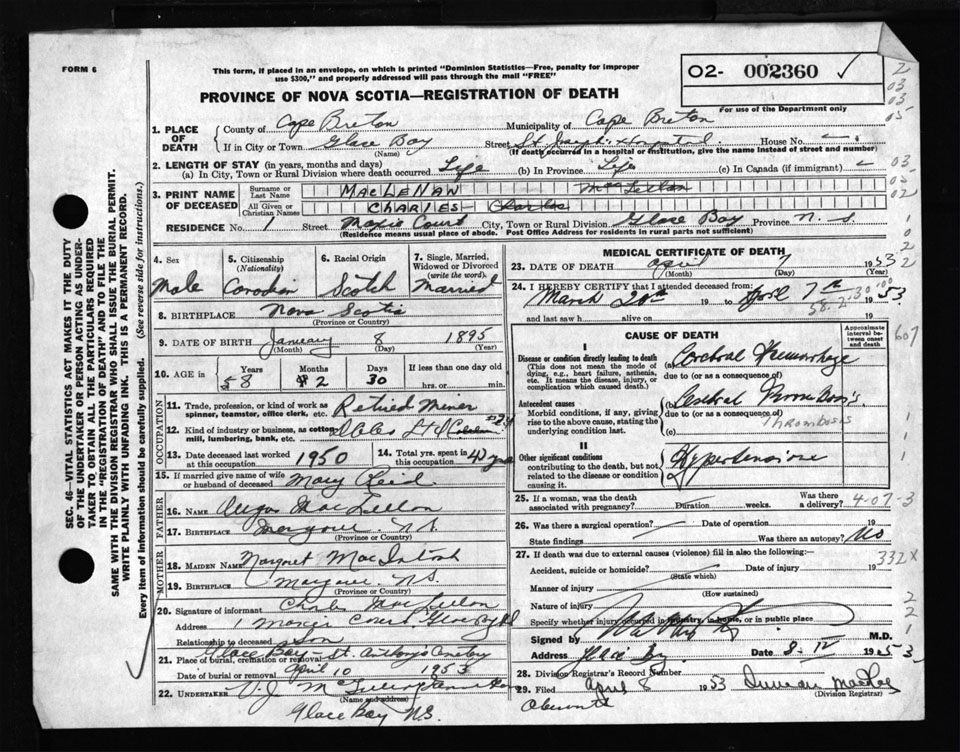 FORM 6
This form, if placed in an envelope, on which is printed "Dominion Statistics—Free, penalty for improper
use $300," and properly addressed will pass through the mail "FREE"
O2- 002360 ✓
For use of the Department only
PROVINCE OF NOVA SCOTIA—REGISTRATION OF DEATH
1. PLACE OF DEATH
County of Cape Breton Municipality of Cape Breton
If in City or Town Glace Bay Street St. Joseph's Hospital House No.
(Name) (If death occurred in a hospital or institution, give the name instead of street and number)
2. LENGTH OF STAY (in years, months and days)
(a) In City, Town or Rural Division where death occurred. Life (b) In Province Life (c) In Canada (if immigrant)
3. PRINT NAME OF DECEASED
Surname or Last Name MACLENAN MacLellan
All Given or Christian Names CHARLES Charles
RESIDENCE No. 1 Street Court City, Town or Rural Division Glace Bay Province N.S.
(Residence means usual place of abode. Post Office Address for residents in rural parts not sufficient)
4. Sex Male
5. Citizenship (Nationality) Canadian
6. Racial Origin Scotch
7. Single, Married, Widowed or Divorced (write the word) Married
8. BIRTHPLACE Nova Scotia
(Province or Country)
9. DATE OF BIRTH January 8 1895
(Month) (Day) (Year)
10. AGE in Years 58 Months 2 Days 30 If less than one day old hrs. or min.
OCCUPATION
11. Trade, profession, or kind of work as spinner, teamster, office clerk, etc. Retired Miner
12. Kind of industry or business, as cotton mill, lumbering, bank, etc. #24
13. Date deceased last worked at this occupation 1950
14. Total yrs. spent in this occupation 40 yrs
15. If married give name of wife or husband of deceased Mary Reid
FATHER
16. NAME Angus MacLellan
17. BIRTHPLACE Margaree N.S.
(Province or Country)
MOTHER
18. MAIDEN NAME Margaret MacIntosh
19. BIRTHPLACE Margaree N.S.
(Province or Country)
20. Signature of informant Charles MacLellan
Address 1 Glace Bay N.S.
Relationship to deceased Son
21. Place of burial, cremation or removal Glace Bay – St. Anthony's Cemetery
Date of burial or removal April 10 1953
22. UNDERTAKER V.J. Mc
(Name and address)
Glace Bay N.S.
MEDICAL CERTIFICATE OF DEATH
23. DATE OF DEATH April 7 1953
(Month) (Day) (Year)
24. I HEREBY CERTIFY that I attended deceased from:
March 20th 19 to April 7th 1953
and last saw h alive on 19
CAUSE OF DEATH
Approximate interval between onset and death
I
Disease or condition directly leading to death
(This does not mean the mode of dying, e.g., heart failure, asthenia, etc. It means the disease, injury, or complication which caused death.)
(a) Cerebral Hemorrhage
due to (or as a consequence of)
Antecedent causes
Morbid conditions, if any, giving rise to the above cause, stating the underlying condition last.
(b) Cerebral Thrombosis
due to (or as a consequence of)
Thrombosis
(c)
II
Other significant conditions
contributing to the death, but not related to the disease or condition causing it.
Hypertension
25. If a woman, was the death associated with pregnancy? Duration weeks. Was there a delivery?
4-07-3
26. Was there a surgical operation? Date of operation 19
State findings Was there an autopsy? No
27. If death was due to external causes (violence) fill in also the following:—
332X
Accident, suicide or homicide? Date of injury 19
(State which)
Manner of injury
(How sustained)
Nature of injury
Specify whether injury occurred in industry, in home, or in public place
Signed by M.D.
Address Glace Bay Date 8-IV 1953
28. Division Registrar's Record Number
29. Filed April 8 1953 Duncan MacRae
(Division Registrar)
SEC. 46—VITAL STATISTICS ACT MAKES IT THE DUTY
OF THE UNDERTAKER OR PERSON ACTING AS UNDER-
TAKER TO OBTAIN ALL THE PARTICULARS REQUIRED
IN THE "REGISTRATION OF DEATH" AND TO FILE THE
SAME WITH THE DIVISION REGISTRAR WHO SHALL ISSUE THE BURIAL PERMIT.
WRITE PLAINLY WITH UNFADING INK. THIS IS A PERMANENT RECORD.
Every item of information should be carefully supplied. (See reverse side for instructions.)